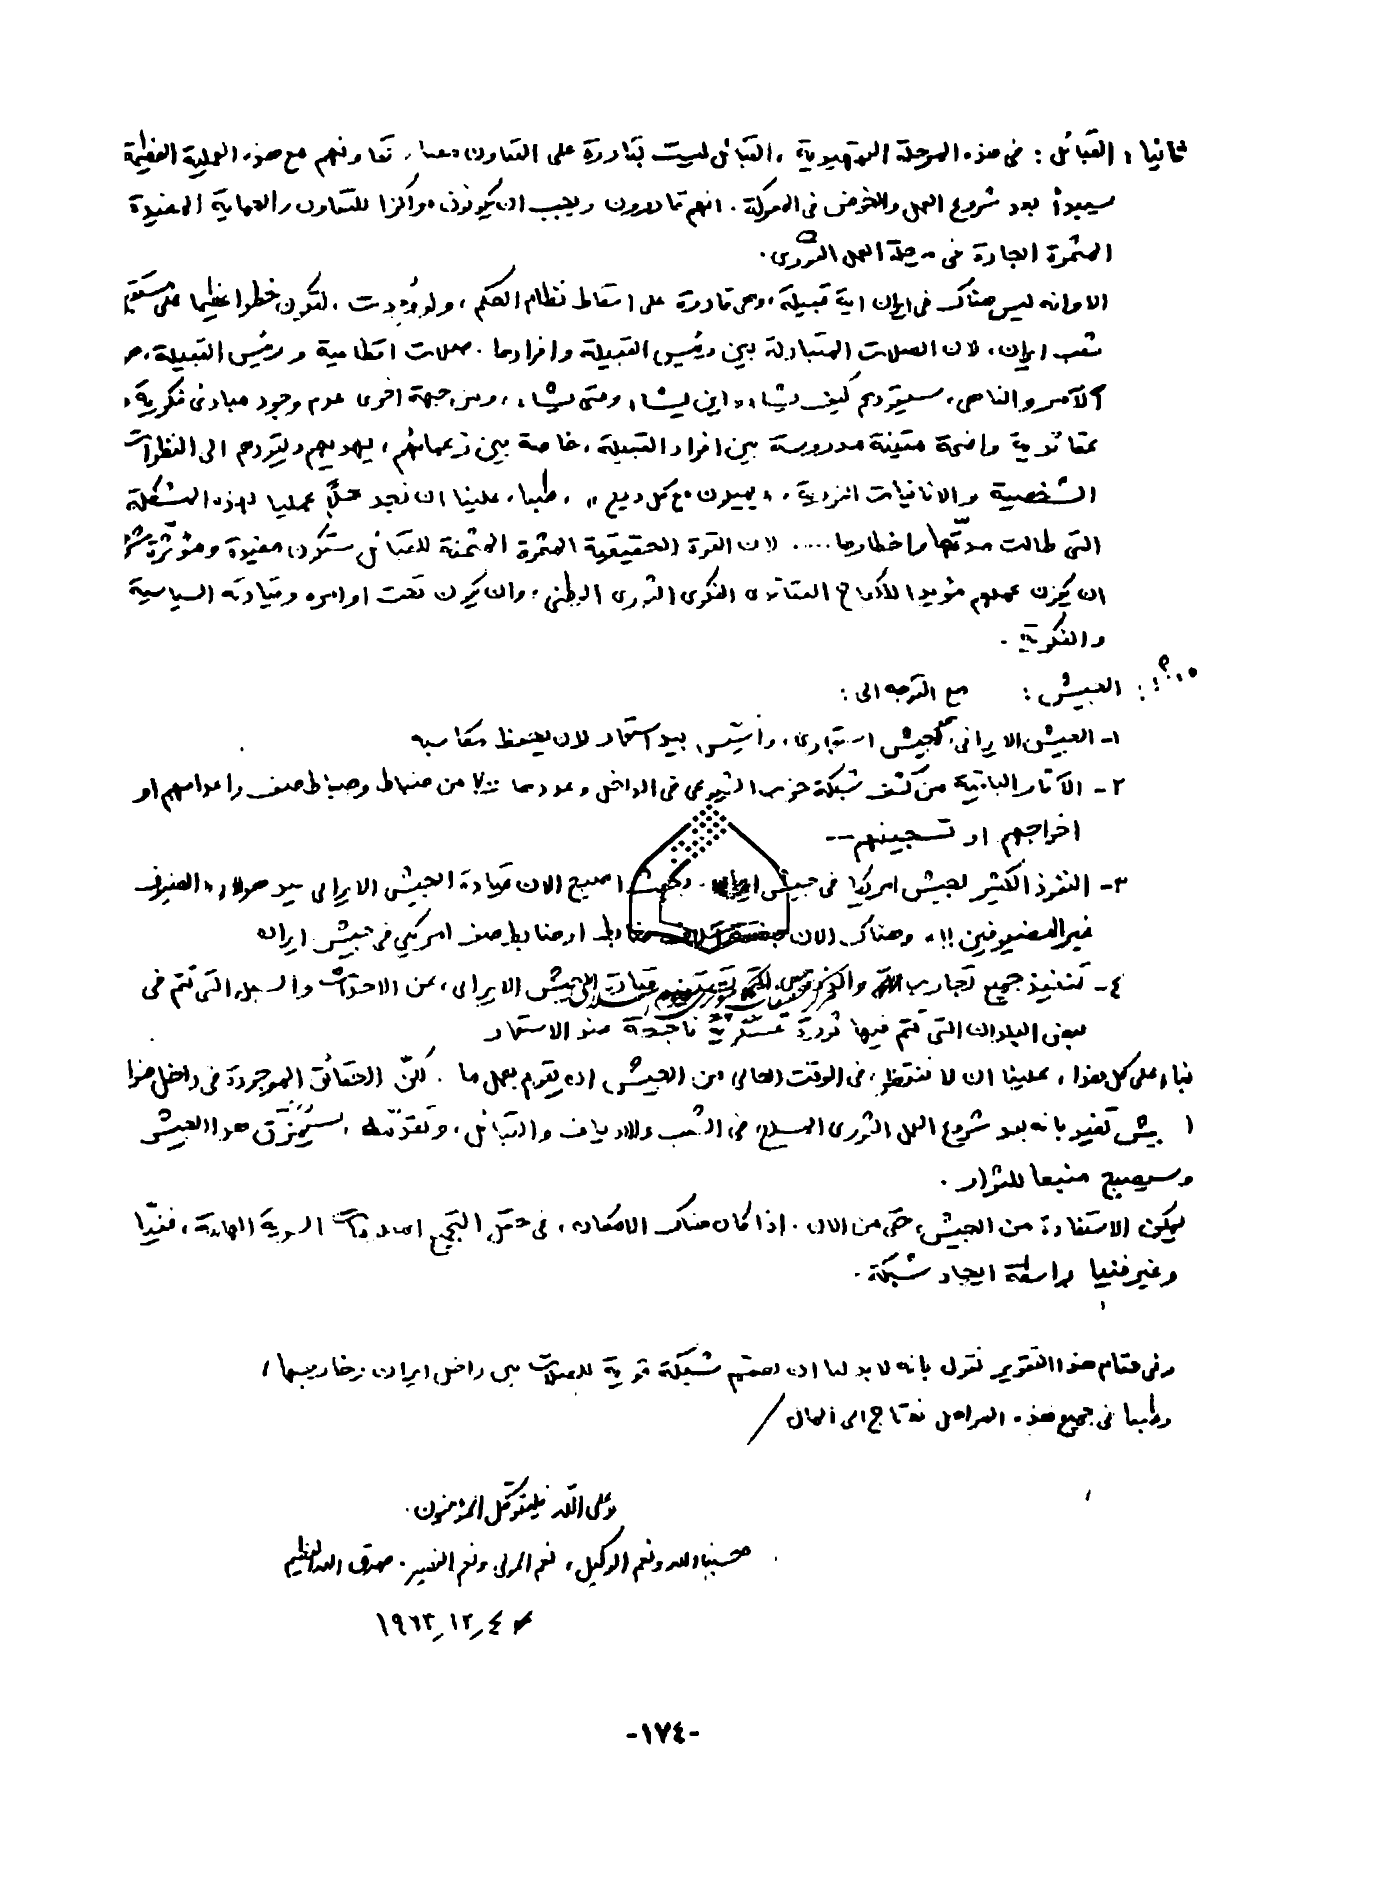 ثانيا: القبائل: في هذه المرحلة التمهيدية، القبائل ليست بقادرة على التعاون معنا. تعاونهم مع هذه العملية العظيمة
سيبدأ بعد شروع العمل والخوض في المعركة. انهم قادرون ويجب ان يكونوا مراكزا للتعاون والحماية المفيدة
المثمرة الجادة في مرحلة العمل الثوري.
الا وانه ليس هناك في ايران اية قبيلة، وهي قادرة على اسقاط نظام الحكم، ولو وُجدت، لتكون خطرا عظيما على مستقبل
شعب ايران، لان الصلات المتبادلة بين رئيس القبيلة وافرادها. صلات اقطاعية ورئيس القبيلة، هو
الآمر والناهي، سيقودهم كيف يشاء، اين يشاء ومتى يشاء، ومن جهة اخرى عدم وجود مبادئ فكرية،
عقائدية واضحة متينة مدروسة بين افراد القبيلة، خاصة بين زعمائهم، يهديهم ويقودهم الى النظرات
الشخصية والانانيات الفردية، «يميلون مع كل ريح»، طبعا، علينا ان نجد حلاً عمليا لهذه المشكلة
التي طالت مدتها واخطارها.... لان القوة الحقيقية المثمرة الثمينة للقبائل ستكون مفيدة ومؤثرة
ان يكون عملهم مؤيدا للكفاح العقائدي الفكري الثوري الوطني، وان يكون تحت اوامره وقيادته السياسية
والفكرية.
الجيش: مع التوجه الى:
١- الجيش الايراني، كجيش استعماري، وأسس بيد استعمار لان يحفظ مكاسبه
٢- الآثار الباقية من كشف شبكة حزب الشيوعي في الداخل وعددها ٧٠٠ من ضباط وضباط صف واعدامهم او
اخراجهم او تسجينهم--
٣- النفوذ الكثير لجيش امريكا في جيش ايران. اصبح الان قيادة الجيش الايراني بيد هولاء «الضيوف
غير المضيوفين!!» وهناك الان ضابط او ضابط صف امريكي في جيش ايران
٤- تنفيذ جميع تجارب الجيش الايراني، من الاحداث والتي تتم في
بعض البلدان التي تتم فيها ثورة عسكرية ناجحة ضد الاستعمار
بناء على كل هذا، علينا ان لا ننتظر، في الوقت الحالي من الجيش انه يقوم بعمل ما. لكنّ الحقائق الموجودة في داخل هذا
الجيش تفيد بانه بعد شروع العمل الثوري المسلح، في الشعب والارياف والقبائل، وتقدّمه، سيُمزّق هذا الجيش
وسيصبح منبعا للثوار.
يمكن الاستفادة من الجيش، حتى من الان. اذا كان هناك الامكان، في حقل التجميع السرية الهامة، فنيّا
وغير فنيا بواسطة ايجاد شبكة.
وفي ختام هذا التقرير نقول بانه لا بد لنا ان نهتم شبكة قوية للصلات بين داخل ايران وخارجها،
وطبعا في جميع هذه المراحل نحتاج الى المال/
وعلى الله فليتوكل المؤمنون.
حسبنا الله ونعم الوكيل، نعم المولى ونعم النصير. صدق الله العظيم
٤ر١٢ر١٩٦٣
-١٧٤-